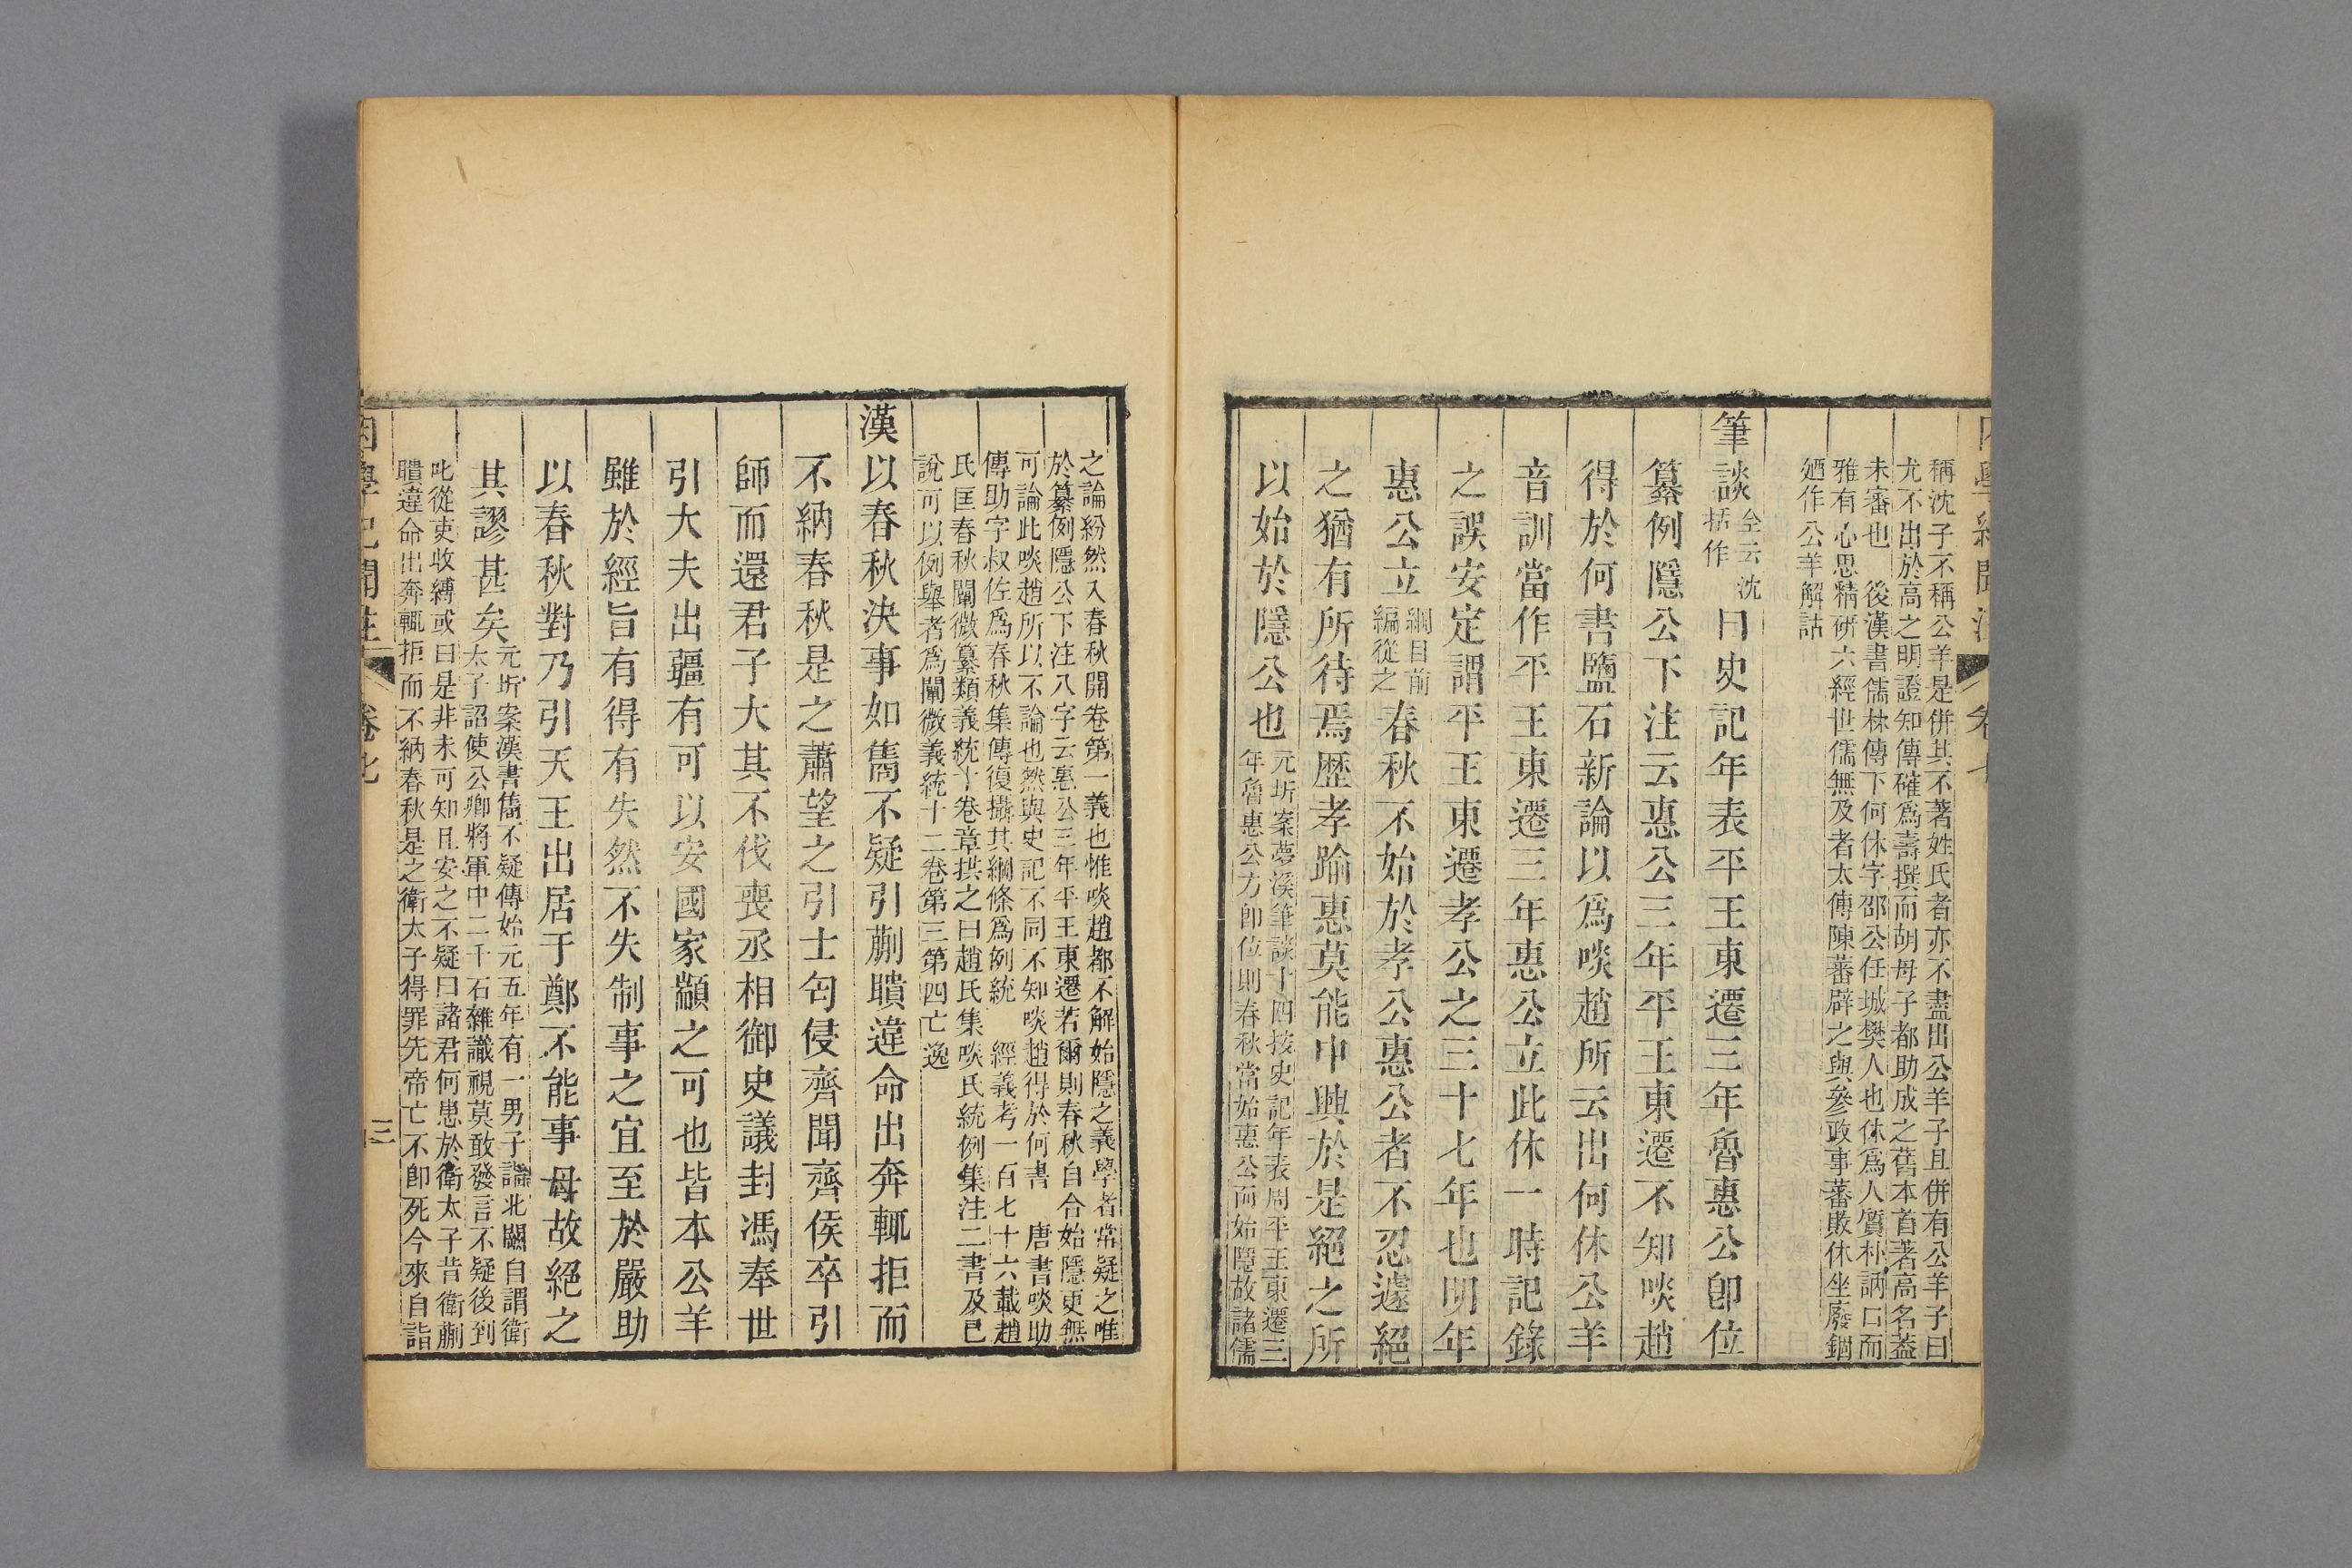 稱沈子不稱公羊是併其不著姓氏者亦不盡出公羊子且併有公羊子曰
尤不出於高之明證知傳確爲壽撰而胡母子都助成之舊本首著高名蓋
未審也 後漢書儒林傳下何休字邵公任城樊人也休爲人質朴訥口而
雅有心思精研六經世儒無及者太傅陳蕃辟之與參政事蕃敗休坐廢錮
廼作公羊解詁
筆談全云沈括作曰史記年表平王東遷三年魯惠公卽位
纂例隱公下注云惠公三年平王東遷不知啖趙
得於何書鹽石新論以爲啖趙所云出何休公羊
音訓當作平王東遷三年惠公立此休一時記錄
之誤安定謂平王東遷孝公之三十七年也明年
惠公立綱目前編從之春秋不始於孝公惠公者不忍遽絕
之猶有所待焉歷孝踰惠莫能中興於是絕之所
以始於隱公也元圻案夢溪筆談十四按史記年表周平王東遷三
年魯惠公方卽位則春秋當始惠公而始隱故諸儒
之論紛然入春秋開卷第一義也惟啖趙都不解始隱之義學者常疑之唯
於纂例隱公下注八字云惠公三年平王東遷若爾則春秋自合始隱更無
可論此啖趙所以不論也然與史記不同不知啖趙得於何書 唐書啖助
傳助字叔佐爲春秋集傳復攝其綱條爲例統 經義考一百七十六載趙
氏匡春秋闡微纂類義統十卷章拱之曰趙氏集啖氏統例集注二書及己
說可以例舉者爲闡微義統十二卷第三第四亡逸
漢以春秋決事如雋不疑引蒯聵違命出奔輒拒而
不納春秋是之蕭望之引士匄侵齊聞齊侯卒引
師而還君子大其不伐喪丞相御史議封馮奉世
引大夫出疆有可以安國家顓之可也皆本公羊
雖於經旨有得有失然不失制事之宜至於嚴助
以春秋對乃引天王出居于鄭不能事母故絕之
其謬甚矣元圻案漢書雋不疑傳始元五年有一男子詣北闕自謂衛
太子詔使公卿將軍中二千石雜識視莫敢發言不疑後到
叱從吏收縛或曰是非未可知且安之不疑曰諸君何患於衛太子昔衛蒯
聵違命出奔輒拒而不納春秋是之衛太子得罪先帝亡不卽死今來自詣